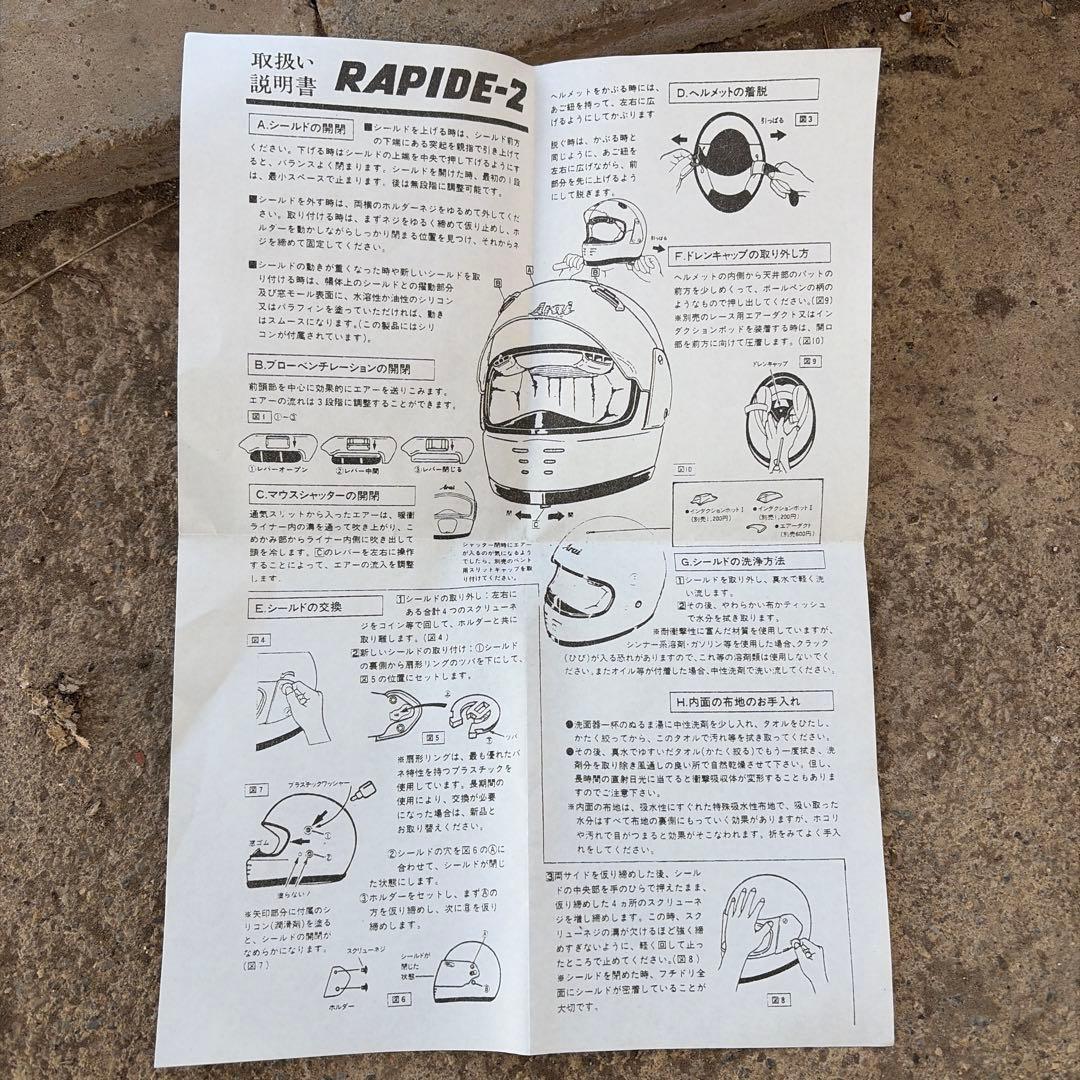 取扱い
説明書
RAPIDE-2
A.シールドの開閉
■シールドを上げる時は、シールド前方
の下端にある突起を親指で引き上げて
ください。下げる時はシールドの上端を中央で押し下げるようにす
ると、バランスよく閉まります。シールドを開けた時、最初の1段
は、最小スペースで止まります。後は無段階に調整可能です。
■シールドを外す時は、両横のホルダーネジをゆるめて外してくだ
さい。取り付ける時は、まずネジをゆるく締めて仮り止めし、ホ
ルダーを動かしながらしっかり閉まる位置を見つけ、それからネ
ジを締めて固定してください。
■シールドの動きが重くなった時や新しいシールドを取
り付ける時は、帽体上のシールドとの摺動部分
及び窓モール表面に、水溶性か油性のシリコン
又はパラフィンを塗っていただければ、動き
はスムースになります。(この製品にはシリ
コンが付属されています)。
B.ブローベンチレーションの開閉
前頭部を中心に効果的にエアーを送りこみます。
エアーの流れは3段階に調整することができます。
図1 ①~③
①レバーオープン
②レバー中間
③レバー閉じる
C.マウスシャッターの開閉
通気スリットから入ったエアーは、緩衝
ライナー内の溝を通って吹き上がり、こ
めかみ部からライナー内側に吹き出して
頭を冷します。Cのレバーを左右に操作
することによって、エアーの流入を調整
します。
Arai
シャッター閉時にエアー
が入るのが気になるよう
でしたら、別売のベント
用スリットキャップを取
り付けてください。
ヘルメットをかぶる時には、
あご紐を持って、左右に広
げるようにしてかぶります
脱ぐ時は、かぶる時と
同じように、あご紐を
左右に広げながら、前
部分を先に上げるよう
にして脱ぎます。
D.ヘルメットの着脱
引っぱる
図3
引っぱる
A
B
B
Arai
閉
C
開
F.ドレンキャップの取り外し方
ヘルメットの内側から天井部のパットの
前方を少しめくって、ボールペンの柄の
ようなもので押し出してください。(図9)
※別売のレース用エアーダクト又はイン
ダクションポッドを装着する時は、開口
部を前方に向けて圧着します。(図10)
ドレンキャップ
図9
図10
●インダクションポットI
(別売1,200円)
●インダクションポットII
(別売1,200円)
●エアーダクト
(別売600円)
Arai
G.シールドの洗浄方法
1シールドを取り外し、真水で軽く洗
い流します。
2その後、やわらかい布かティッシュ
で水分を拭き取ります。
※耐衝撃性に富んだ材質を使用していますが、
シンナー系溶剤・ガソリン等を使用した場合、クラック
(ひび)が入る恐れがありますので、これ等の溶剤類は使用しないでく
ださい。またオイル等が付着した場合、中性洗剤で洗い流してください。
H.内面の布地のお手入れ
●洗面器一杯のぬるま湯に中性洗剤を少し入れ、タオルをひたし、
かたく絞ってから、このタオルで汚れ等を拭き取ってください。
●その後、真水でゆすいだタオル(かたく絞る)でもう一度拭き、洗
剤分を取り除き風通しの良い所で自然乾燥させて下さい。但し、
長時間の直射日光に当てると衝撃吸収体が変形することもありま
すのでご注意下さい。
※内面の布地は、吸水性にすぐれた特殊吸水性布地で、吸い取った
水分はすべて布地の裏側にもっていく効果がありますが、ホコリ
や汚れで目がつまると効果がそこなわれます。折をみてよく手入
れをしてください。
E.シールドの交換
1シールドの取り外し:左右に
ある合計4つのスクリューネ
ジをコイン等で回して、ホルダーと共に
取り離します。(図4)
図4
2新しいシールドの取り付け:①シールド
の裏側から扇形リングのツバを下にして、
図5の位置にセットします。
図5
上
下
ツバ
※扇形リングは、最も優れたバ
ネ特性を持つプラスチックを
使用しています。長期間の
使用により、交換が必要
になった場合は、新品と
お取り替えください。
図7
プラスチックワッシャー
窓ゴム
①
②
塗らない!
※矢印部分に付属のシ
リコン(潤滑剤)を塗る
と、シールドの開閉が
なめらかになります。
(図7)
②シールドの穴を図6のAに
合わせて、シールドが閉じ
た状態にします。
③ホルダーをセットし、まずAの
方を仮り締めし、次にBを仮り
締めします。
スクリューネジ
ホルダー
シールドが
閉じた
状態
A
B
図6
3両サイドを仮り締めした後、シール
ドの中央部を手のひらで押えたまま、
仮り締めした4ヵ所のスクリューネ
ジを増し締めします。この時、スク
リューネジの溝が欠けるほど強く締
めすぎないように、軽く回して止っ
たところで止めてください。(図8)
※シールドを閉めた時、フチドリ全
面にシールドが密着していることが
大切です。
図8